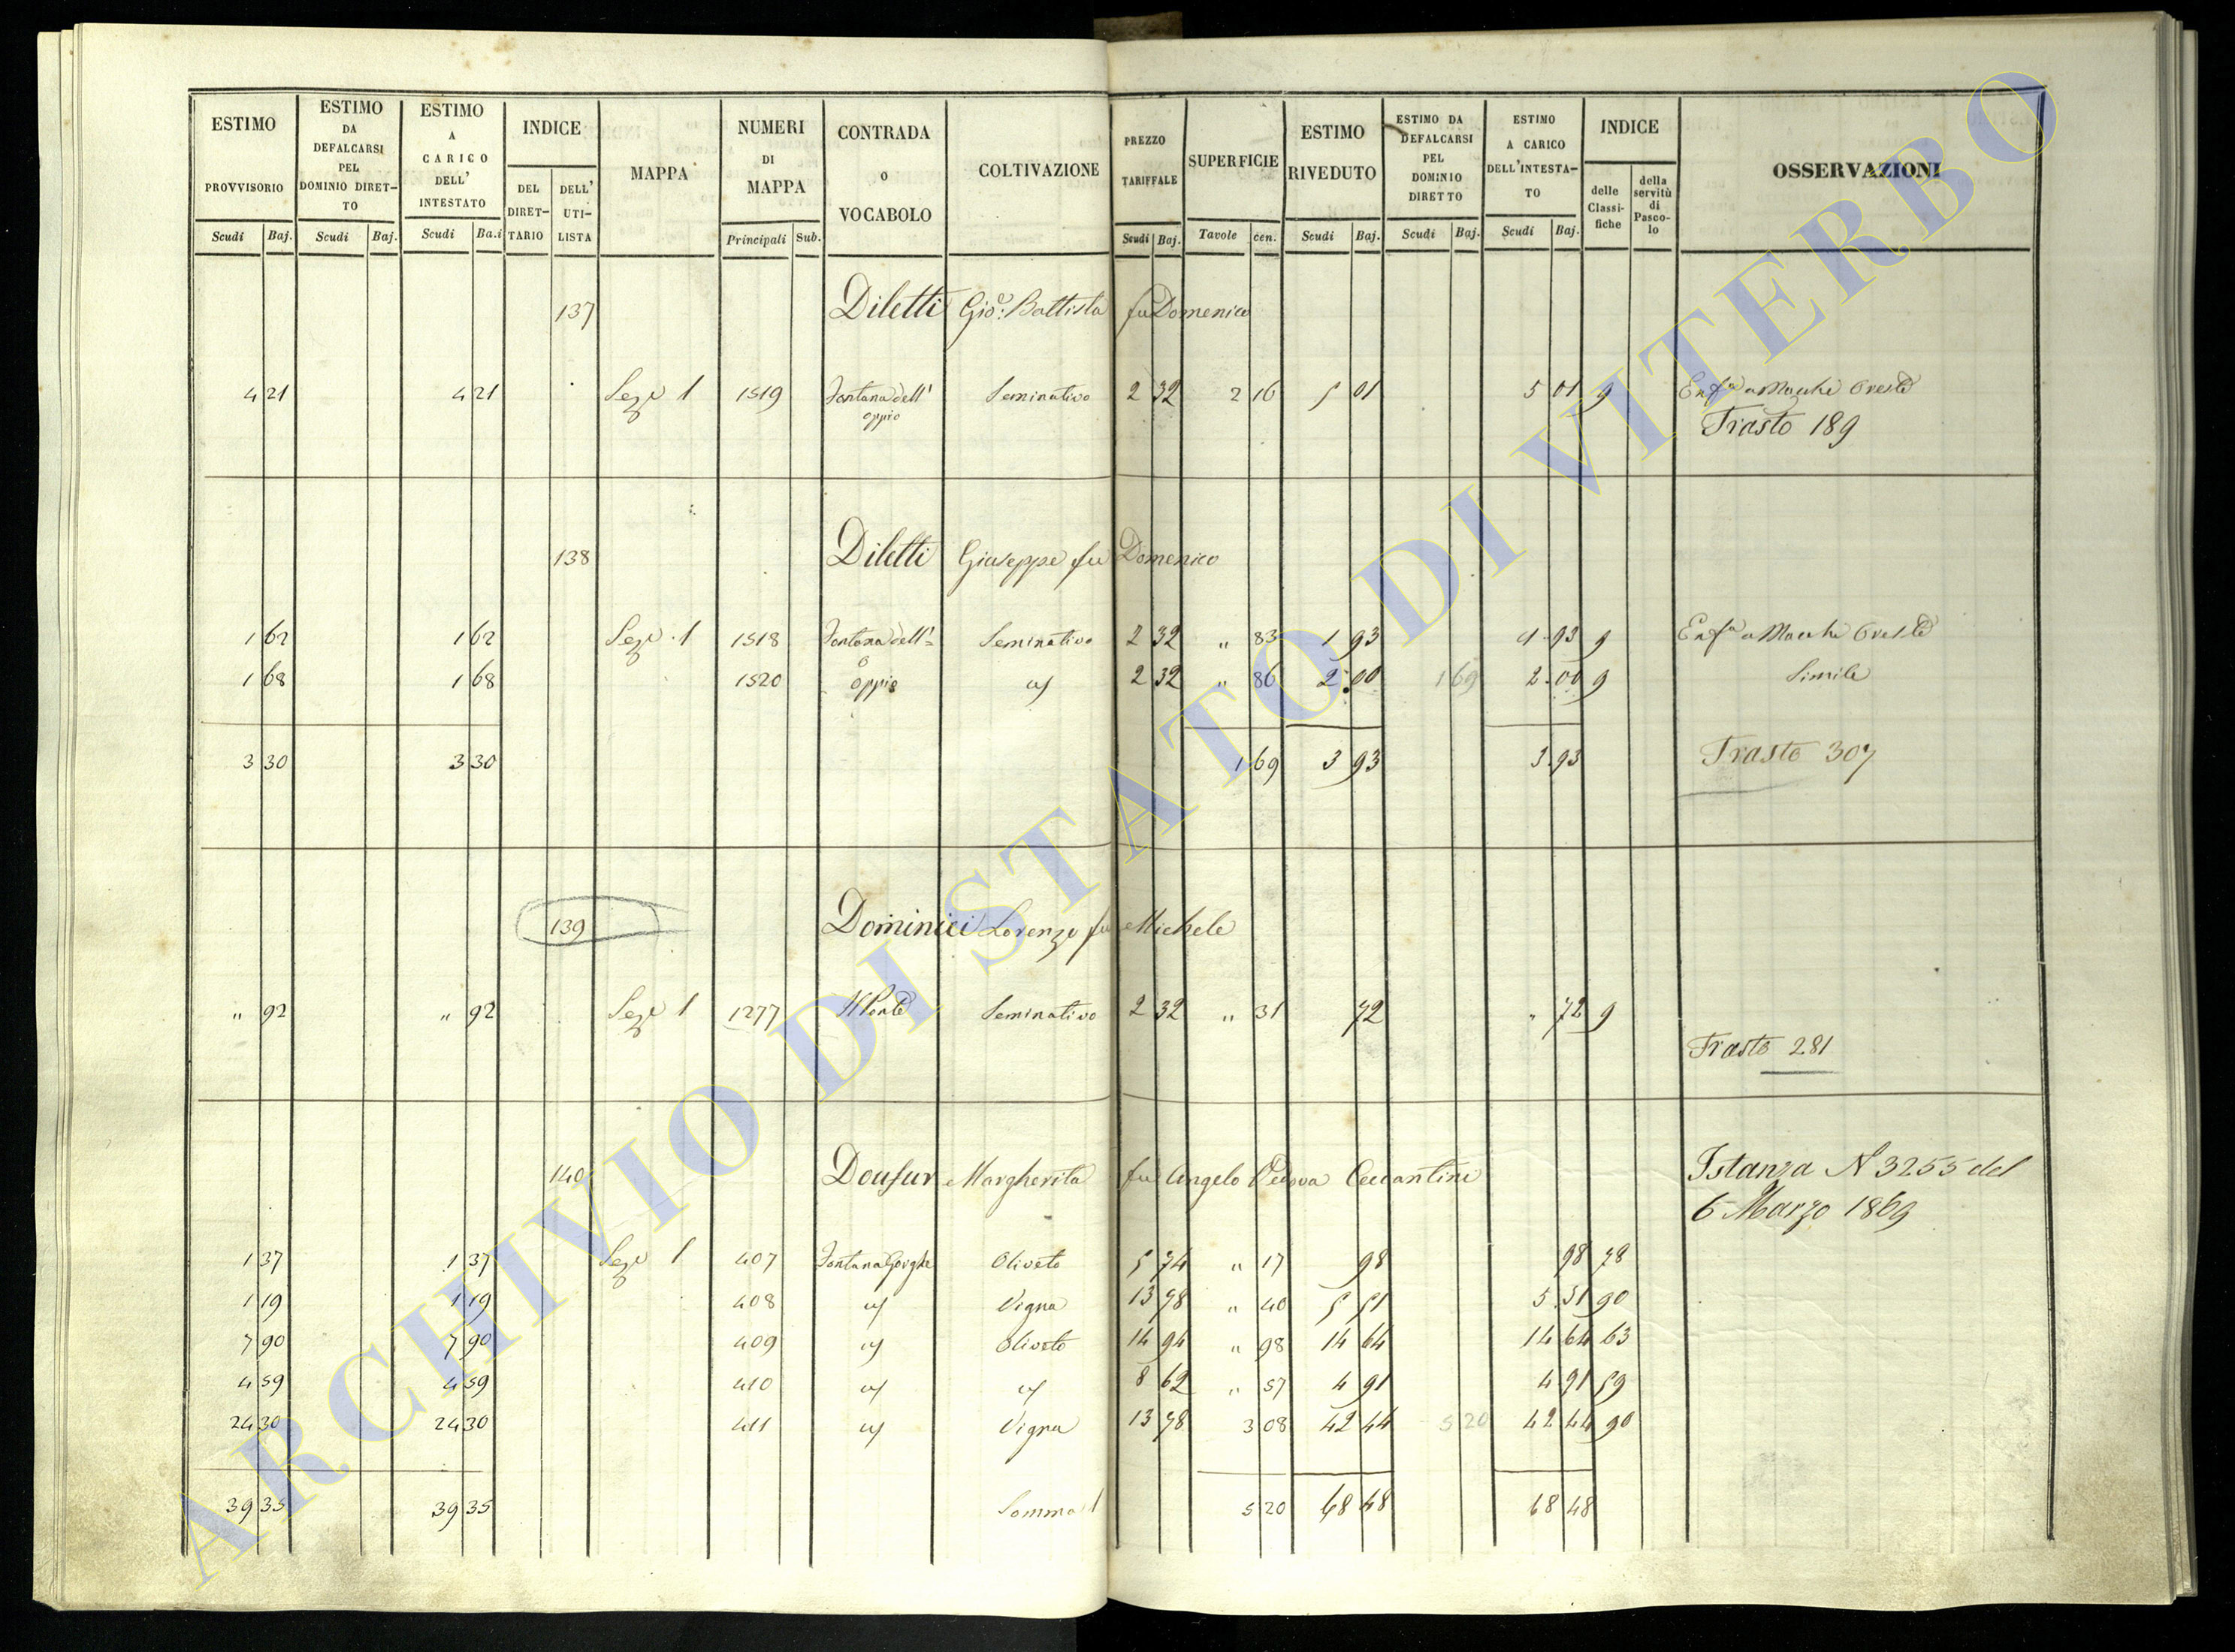 ESTIMO PROVVISORIO | ESTIMO DA DEFALCARSI PEL DOMINIO DIRET-TO | ESTIMO A CARICO DELL' INTESTATO | INDICE | MAPPA | NUMERI DI MAPPA | CONTRADA O VOCABOLO | COLTIVAZIONE | PREZZO TARIFFALE | SUPERFICIE | ESTIMO RIVEDUTO | ESTIMO DA DEFALCARSI PEL DOMINIO DIRETTO | ESTIMO A CARICO DELL'INTESTA-TO | INDICE | OSSERVAZIONI
DEL DIRET-TARIO | DELL' UTI-LISTA | delle Classi-fiche | della servitù di Pasco-lo
Scudi | Baj. | Scudi | Baj. | Scudi | Ba.i | Principali | Sub. | Scudi | Baj. | Tavole | cen. | Scudi | Baj. | Scudi | Baj. | Scudi | Baj.
137 Diletti Gio: Battista fu Domenico
4 21 4 21 Sez.e 1 1519 Fontana dell' oppio Seminativo 2 32 2 16 5 01 5 01 9
Trasto 189
138 Diletti Giuseppe fu Domenico
1 62 1 62 Sez.e 1 1518 Fontana dell'= Seminativo 2 32 " 83 1 93 1 93 9
1 68 1 68 1520 oppio 2 32 " 86 2 00 1 69 2 00 9 Simile
3 30 3 30 1 69 3 93 3 93 Trasto 307
139 Dominici Lorenzo fu Michele
" 92 " 92 Sez.e 1 1277 Il Ponte Seminativo 2 32 " 31 72 " 72 9
Trasto 281
140 Doufur Margherita fu Angelo Vedova Ceccantini Istanza N 3255 del
6 Marzo 1869
1 37 1 37 Sez.e 1 407 Fontana Gorghe Oliveto 5 74 " 17 98 98 78
1 19 1 19 408 Vigna 13 78 " 40 5 51 5 51 90
7 90 7 90 409 Oliveto 14 94 " 98 14 64 14 64 63
4 59 4 59 410 8 62 " 57 4 91 4 91 59
24 30 24 30 411 Vigna 13 78 3 08 42 44 5 20 42 44 90
39 35 39 35 Somma 5 20 68 48 68 48
ARCHIVIO DI STATO DI VITERBO